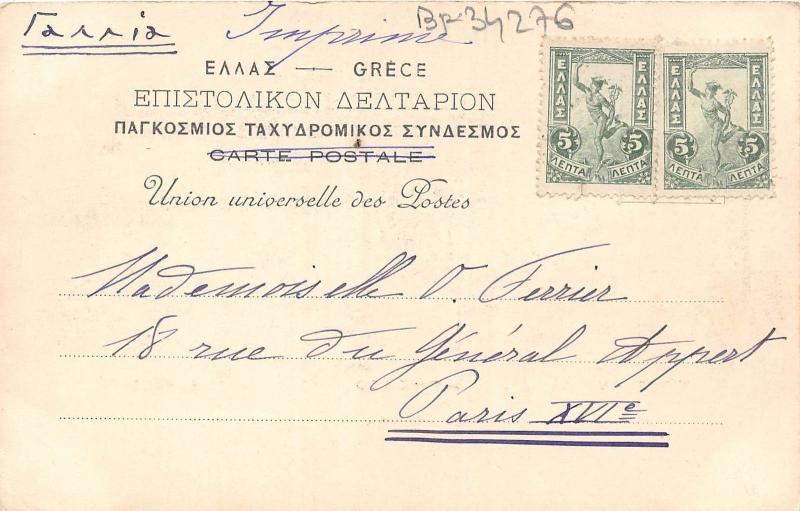 Γαλλία Imprimé BP34276
ΕΛΛΑΣ — GRÈCE
ΕΠΙΣΤΟΛΙΚΟΝ ΔΕΛΤΑΡΙΟΝ
ΠΑΓΚΟΣΜΙΟΣ ΤΑΧΥΔΡΟΜΙΚΟΣ ΣΥΝΔΕΣΜΟΣ
CARTE POSTALE
Union universelle des Postes
ΕΛΛΑΣ ΕΛΛΑΣ
5 5
ΛΕΠΤΑ ΛΕΠΤΑ
ΕΛΛΑΣ ΕΛΛΑΣ
5 5
ΛΕΠΤΑ ΛΕΠΤΑ
Mademoiselle O. Ferrier
18 rue du Général Appert
Paris XVIe